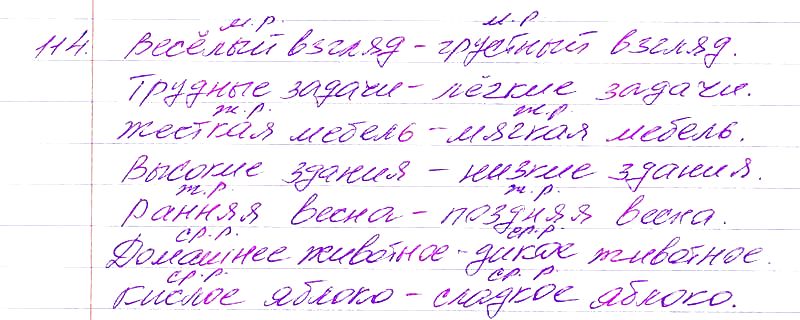 м.р. м.р
114. Весёлый взгляд - грустный взгляд.
Трудные задачи - лёгкие задачи.
ж.р. ж.р.
Жесткая мебель - мягкая мебель.
Высокие здания - низкие здания.
ж.р. ж.р.
Ранняя весна - поздняя весна.
ср.р. ср.р.
Домашнее животное - дикое животное.
ср.р. ср.р.
Кислое яблоко - сладкое яблоко.